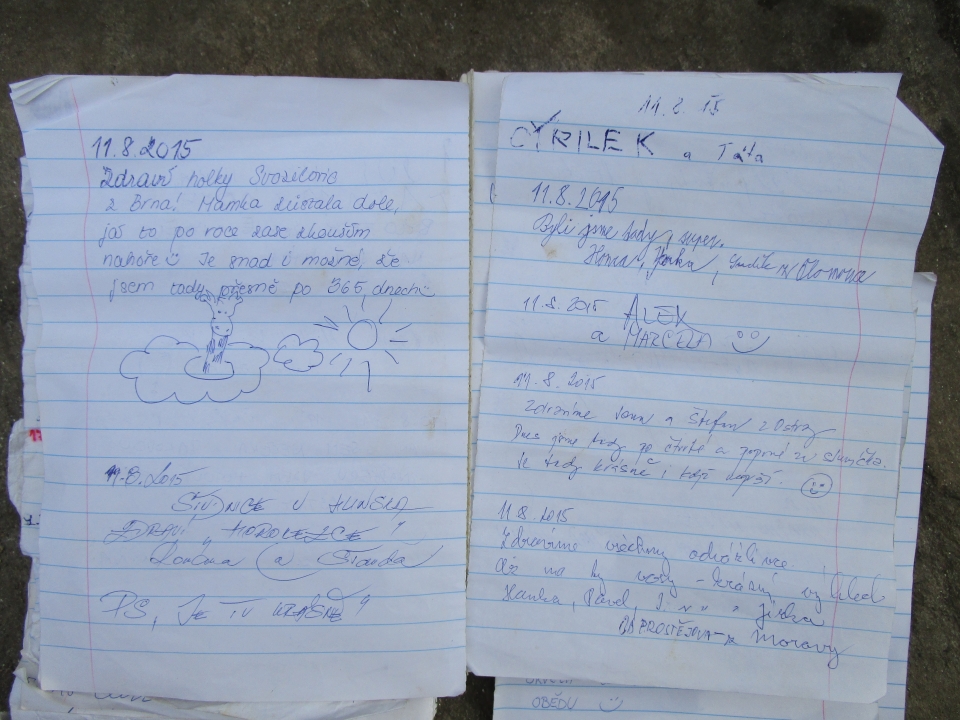 11.8.2015
Zdraví holky
z Brna! Mamka zůstala dole,
já to po roce zase zkouším
nahoře Je snad i možné, že
jsem tady přesně po 365 dnech
11.8.2015
STUDNICE U HLINSKA
ZDRAVÍ „HOROLEZCE“
a Standa
PS, JE TU KRÁSNĚ"
11.8.15
CYRILEK a Táta
11.8.2015
Byli jsme tady, super.
Honza, Olomouce
11.8.2015 ALEX
a MARCELA
11.8.2015
Zdravíme Jana a Štefan z
Dnes jsme tady po čtvrté a poprvé za sluníčka.
Je tady krásně i když
11.8.2015
Zdravíme všechny odvážlivce
Až na ty - krásný výhled
Hanka, Pavel, Jirka
PROSTĚJOVA - z Moravy
OBĚDU